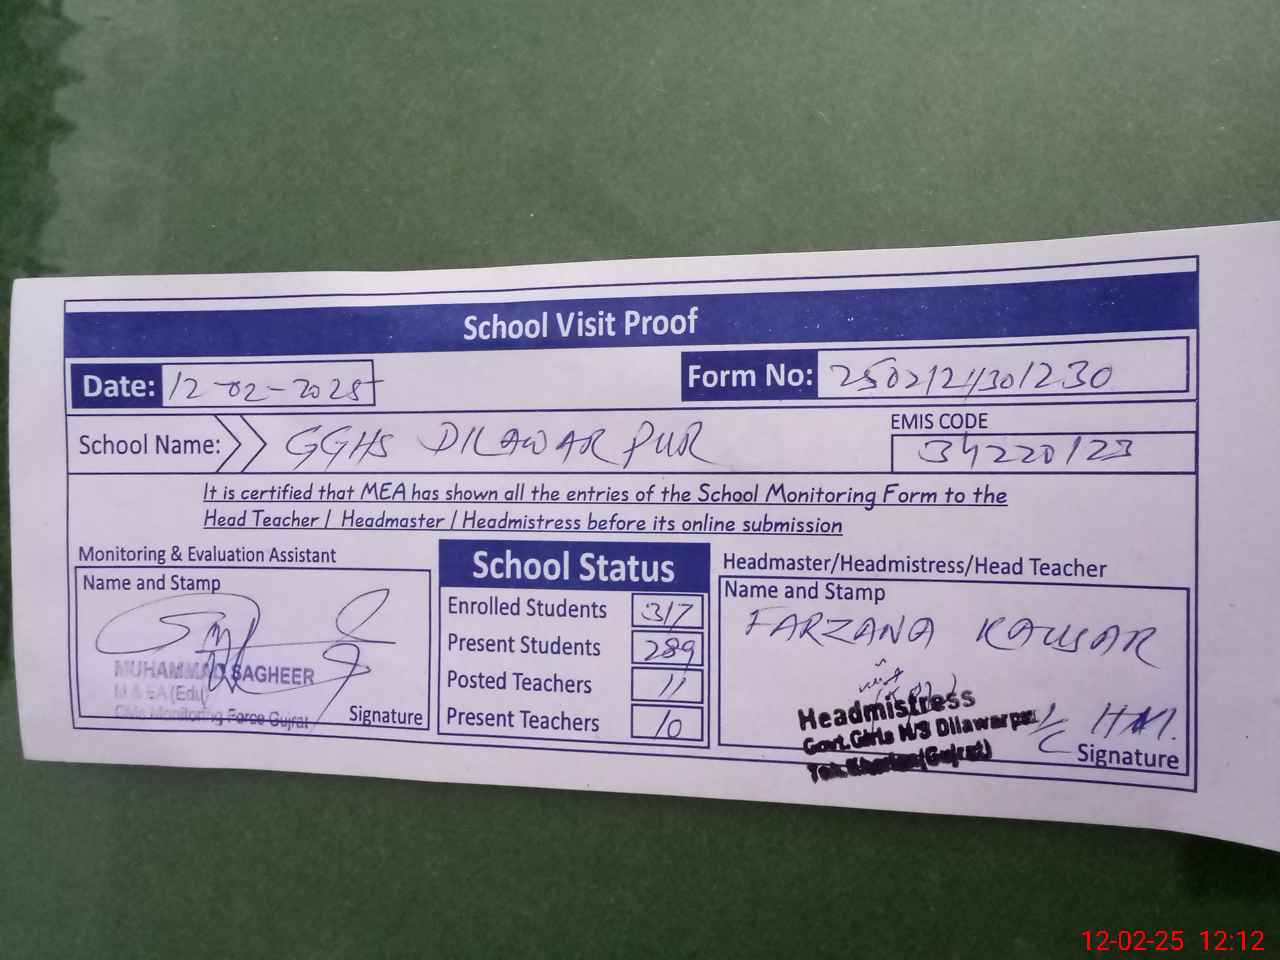 School Visit Proof
Date: 12-02-2025
Form No: 2502124301230
School Name: GGHS DILAWAR PUR
EMIS CODE
34220123
It is certified that MEA has shown all the entries of the School Monitoring Form to the
Head Teacher / Headmaster / Headmistress before its online submission
Monitoring & Evaluation Assistant
Name and Stamp
MUHAMMAD SAGHEER
M & EA (Edu)
Monitoring Force Gujrat
Signature
School Status
Enrolled Students 317
Present Students 289
Posted Teachers 11
Present Teachers 10
Headmaster/Headmistress/Head Teacher
Name and Stamp
FARZANA KAUSAR
Headmistress
Govt. Girls H/S Dilawarpur
Teh. Kharian (Gujrat)
I/C HM.
Signature
12-02-25 12:12